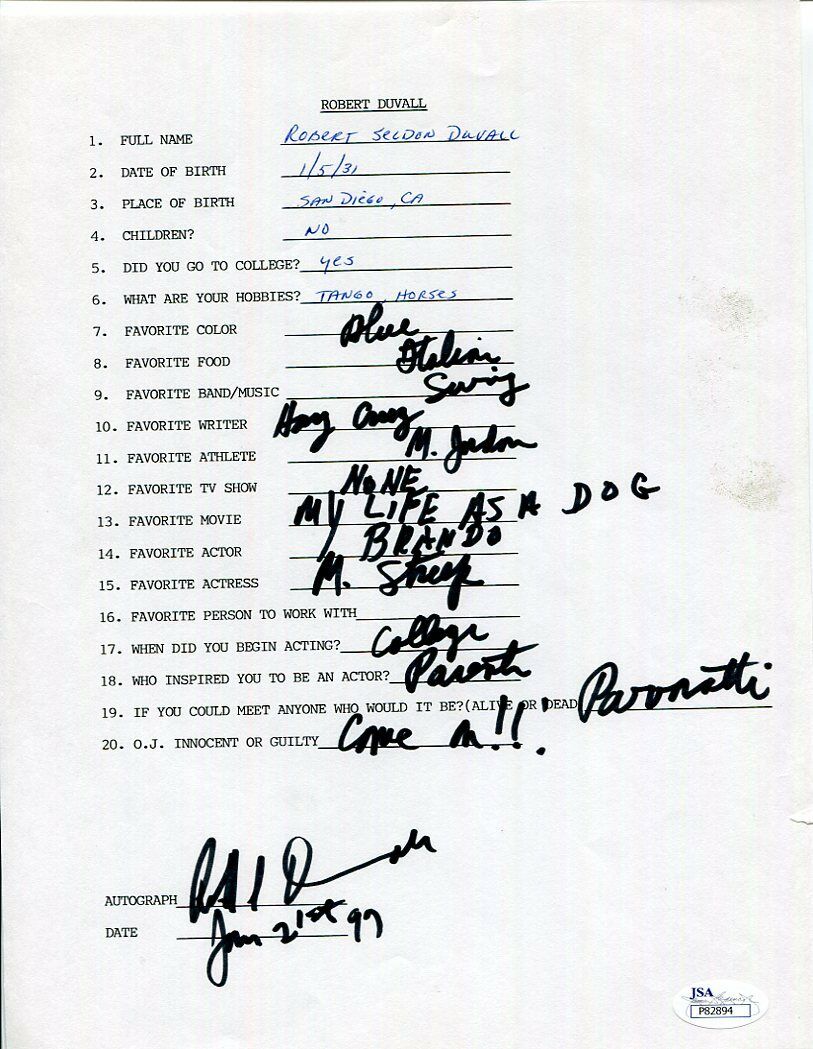 ROBERT DUVALL
1. FULL NAME ROBERT SELDON DUVALL
2. DATE OF BIRTH 1/5/31
3. PLACE OF BIRTH SAN DIEGO, CA
4. CHILDREN? NO
5. DID YOU GO TO COLLEGE? yes
6. WHAT ARE YOUR HOBBIES? TANGO, HORSES
7. FAVORITE COLOR Blue
8. FAVORITE FOOD Italian
9. FAVORITE BAND/MUSIC Swing
10. FAVORITE WRITER
11. FAVORITE ATHLETE M. Jordon
12. FAVORITE TV SHOW NONE
13. FAVORITE MOVIE MY LIFE AS A DOG
14. FAVORITE ACTOR BRANDO
15. FAVORITE ACTRESS M. Streep
16. FAVORITE PERSON TO WORK WITH
17. WHEN DID YOU BEGIN ACTING? College
18. WHO INSPIRED YOU TO BE AN ACTOR? Parents
19. IF YOU COULD MEET ANYONE WHO WOULD IT BE?(ALIVE OR DEAD Pavoratti
20. O.J. INNOCENT OR GUILTY Come on!!!
AUTOGRAPH
DATE Jan 21st 97
JSA
P82894